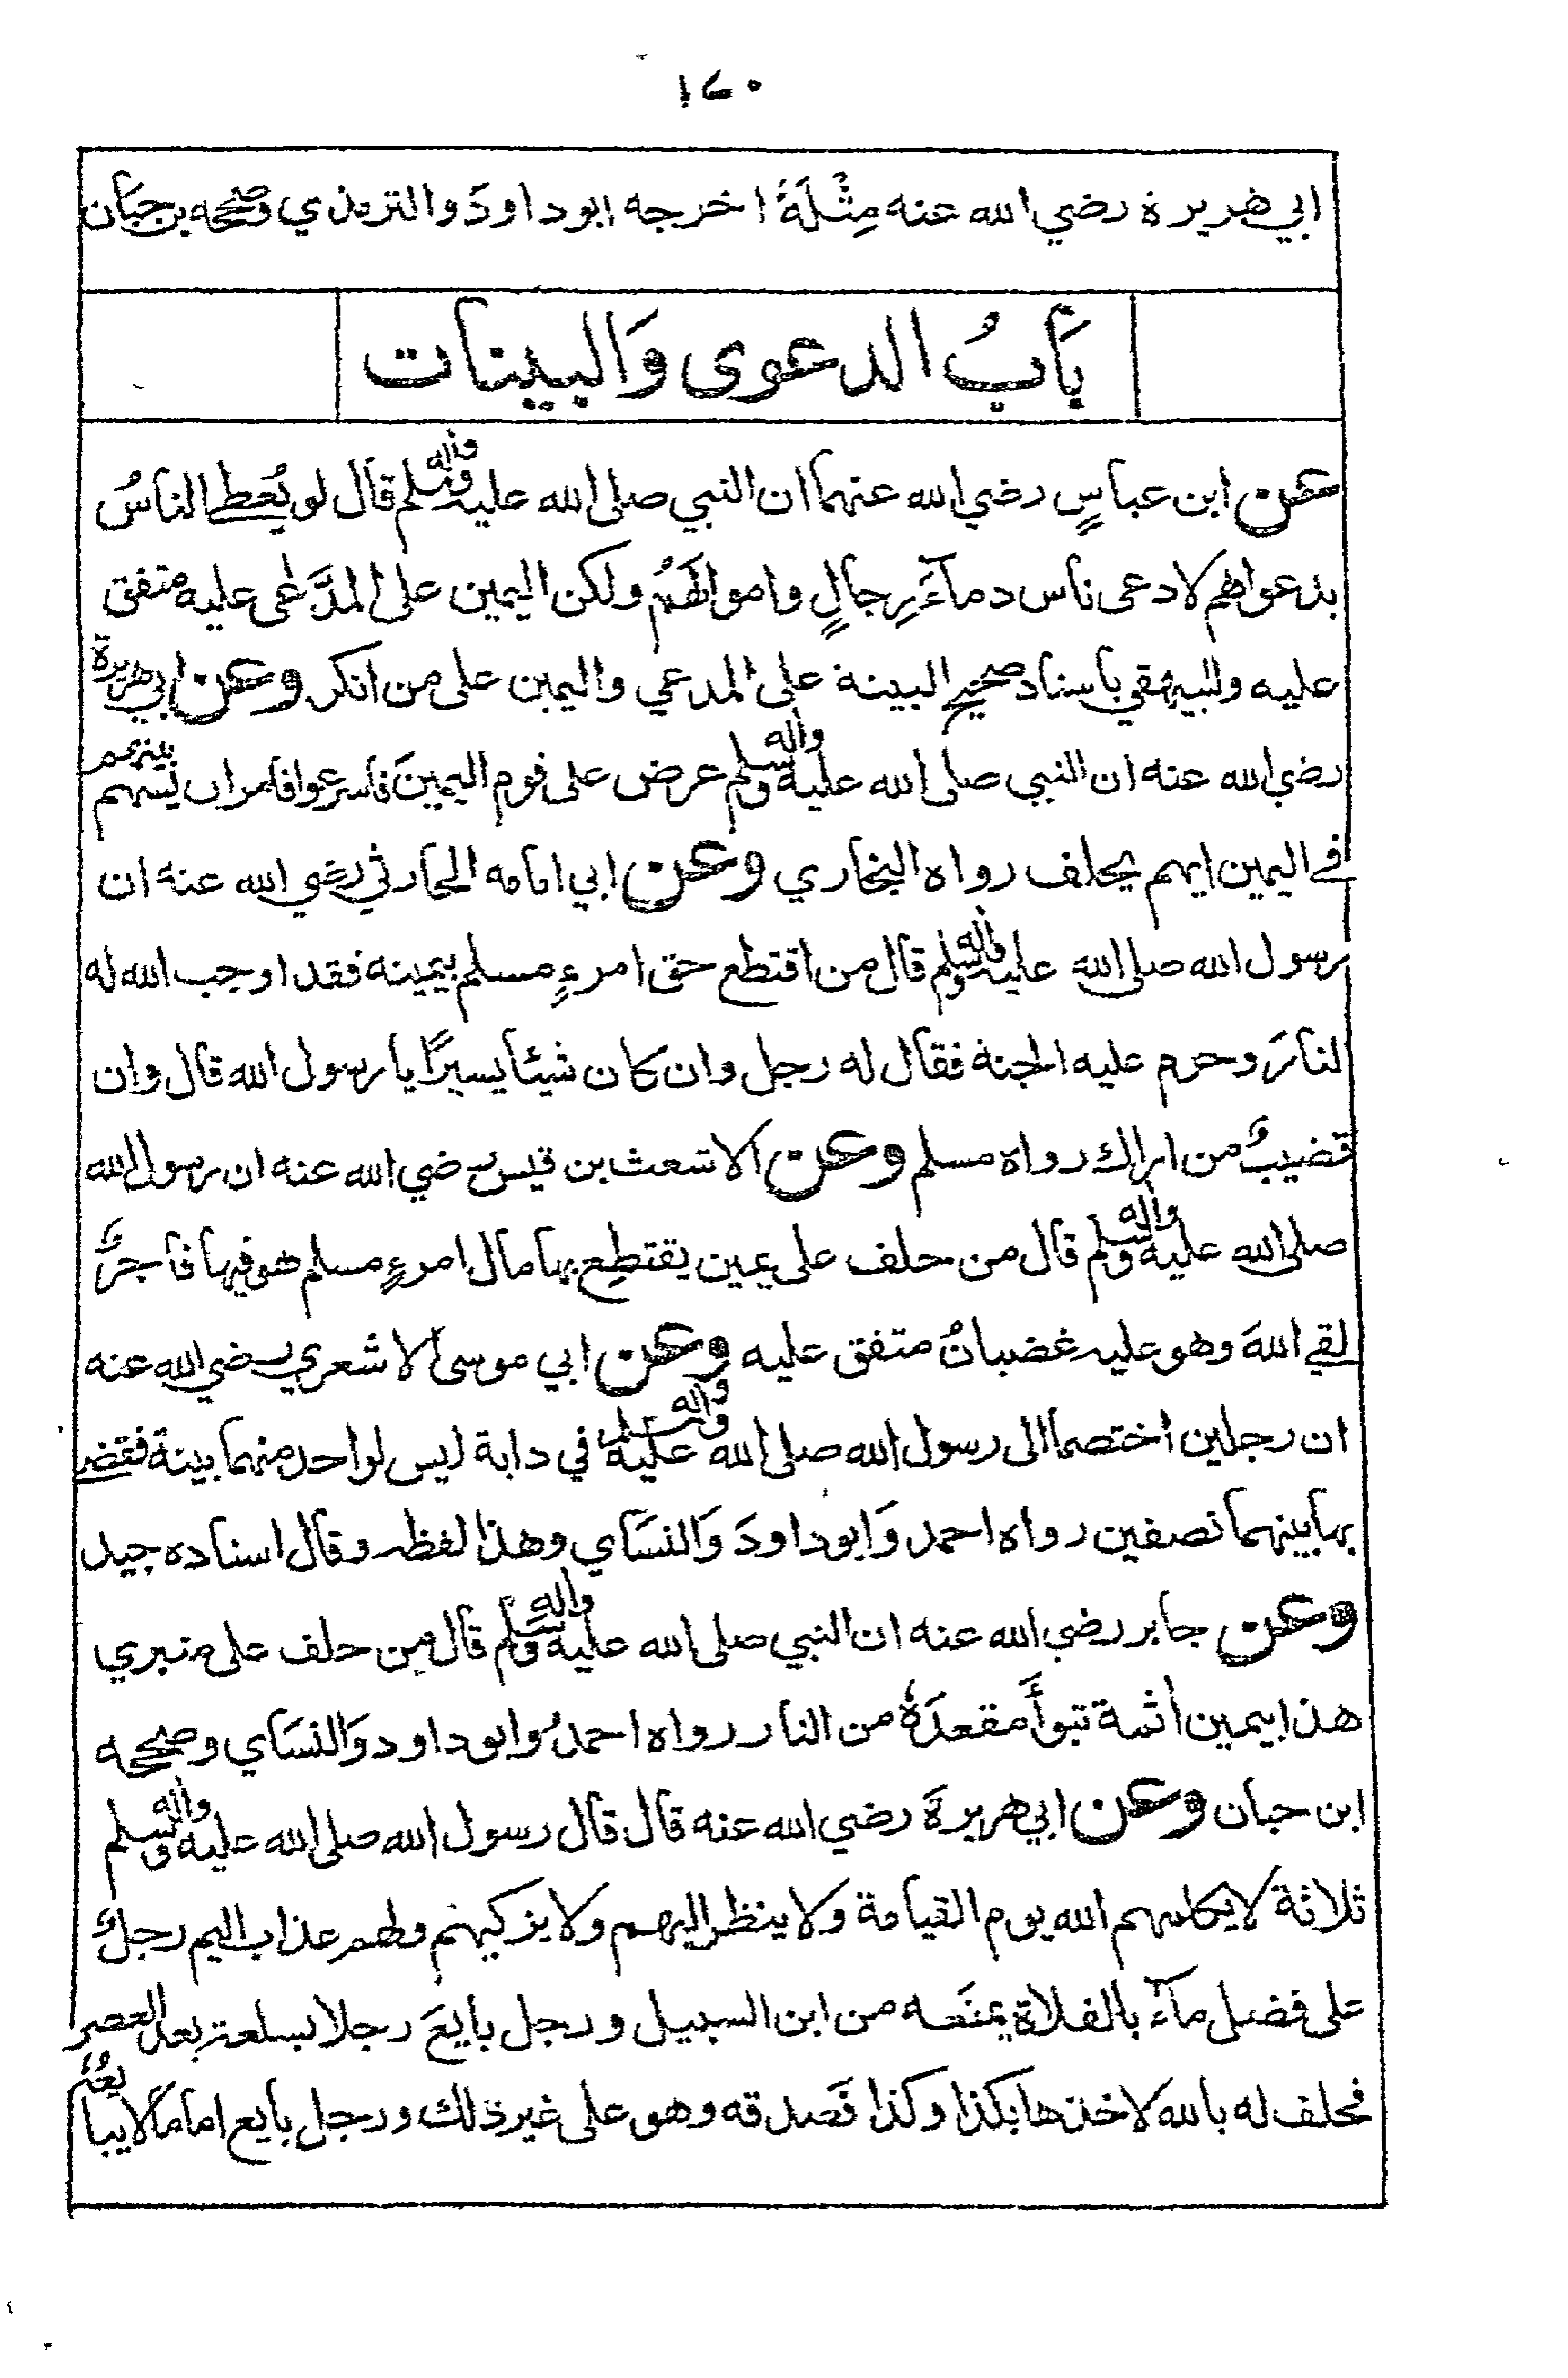 ١٤٠
ابي هريرة رضي الله عنه مِثْلَهُ اخرجه ابوداودَ والترمذي وصححه بن حبان
بَابُ الدعوى وَالبينات
عن ابن عباسٍ رضي الله عنهما ان النبي صلى الله عليه واله وسلم قال لو يُعطى الناسُ
بدعواهم لادعى ناس دمآءَ رِجالٍ واموالَهُمْ ولكن اليمين على المدَّعى عليه متفق
عليه وللبيهقي باسناد صحيح البينة على المدعي واليمين على من انكر وعن ابي هريرة
رضي الله عنه ان النبي صلى الله عليه واله وسلم عرض على قوم اليمينَ فاسرعوا فامر ان يسهم بينهم
في اليمين ايهم يحلف رواه البخاري وعن ابي امامه الحارثي رضي الله عنه ان
رسول الله صلى الله عليه واله وسلم قال من اقتطع حق امرءٍ مسلم بيمينه فقد اوجب الله له
النارَ وحرم عليه الجنة فقال له رجل وان كان شيئا يسيرًا يا رسول الله قال وان
قضيبٌ من اراك رواه مسلم وعن الاشعث بن قيس رضي الله عنه ان رسول الله
صلى الله عليه واله وسلم قال من حلف على يمين يقتطِع بها مال امرءٍ مسلم هو فيها فاجرٌ
لقي اللهَ وهو عليه غضبانُ متفق عليه وعن ابي موسى الاشعري رضي الله عنه
ان رجلين اختصما الى رسول الله صلى الله عليه واله وسلم في دابة ليس لواحد منهما بينة فقضى
بها بينهما نصفين رواه احمد وَابوداودَ وَالنسَاي وهذا لفظه وقال اسناده جيد
وعن جابر رضي الله عنه ان النبي صلى الله عليه واله وسلم قال من حلف على منبري
هذا بيمين اثمة تبوأَ مقعدَهُ من النار رواه احمدُ وابوداود وَالنسَاي وصححه
ابن حبان وعن ابي هريرةَ رضي الله عنه قال قال رسول الله صلى الله عليه واله وسلم
ثلاثة لا يكلمهم الله يوم القيامة ولا ينظر اليهم ولا يزكيهم ولهم عذاب اليم رجلٌ
على فضل مآءٍ بالفلاة يمنَعه من ابن السبيل ورجل بايعَ رجلا بسلعة بعد العصر
فحلف له بالله لاخذها بكذا وكذا فَصدقه وهو على غير ذلك ورجل بايع امامًا لا يبايعُهُ